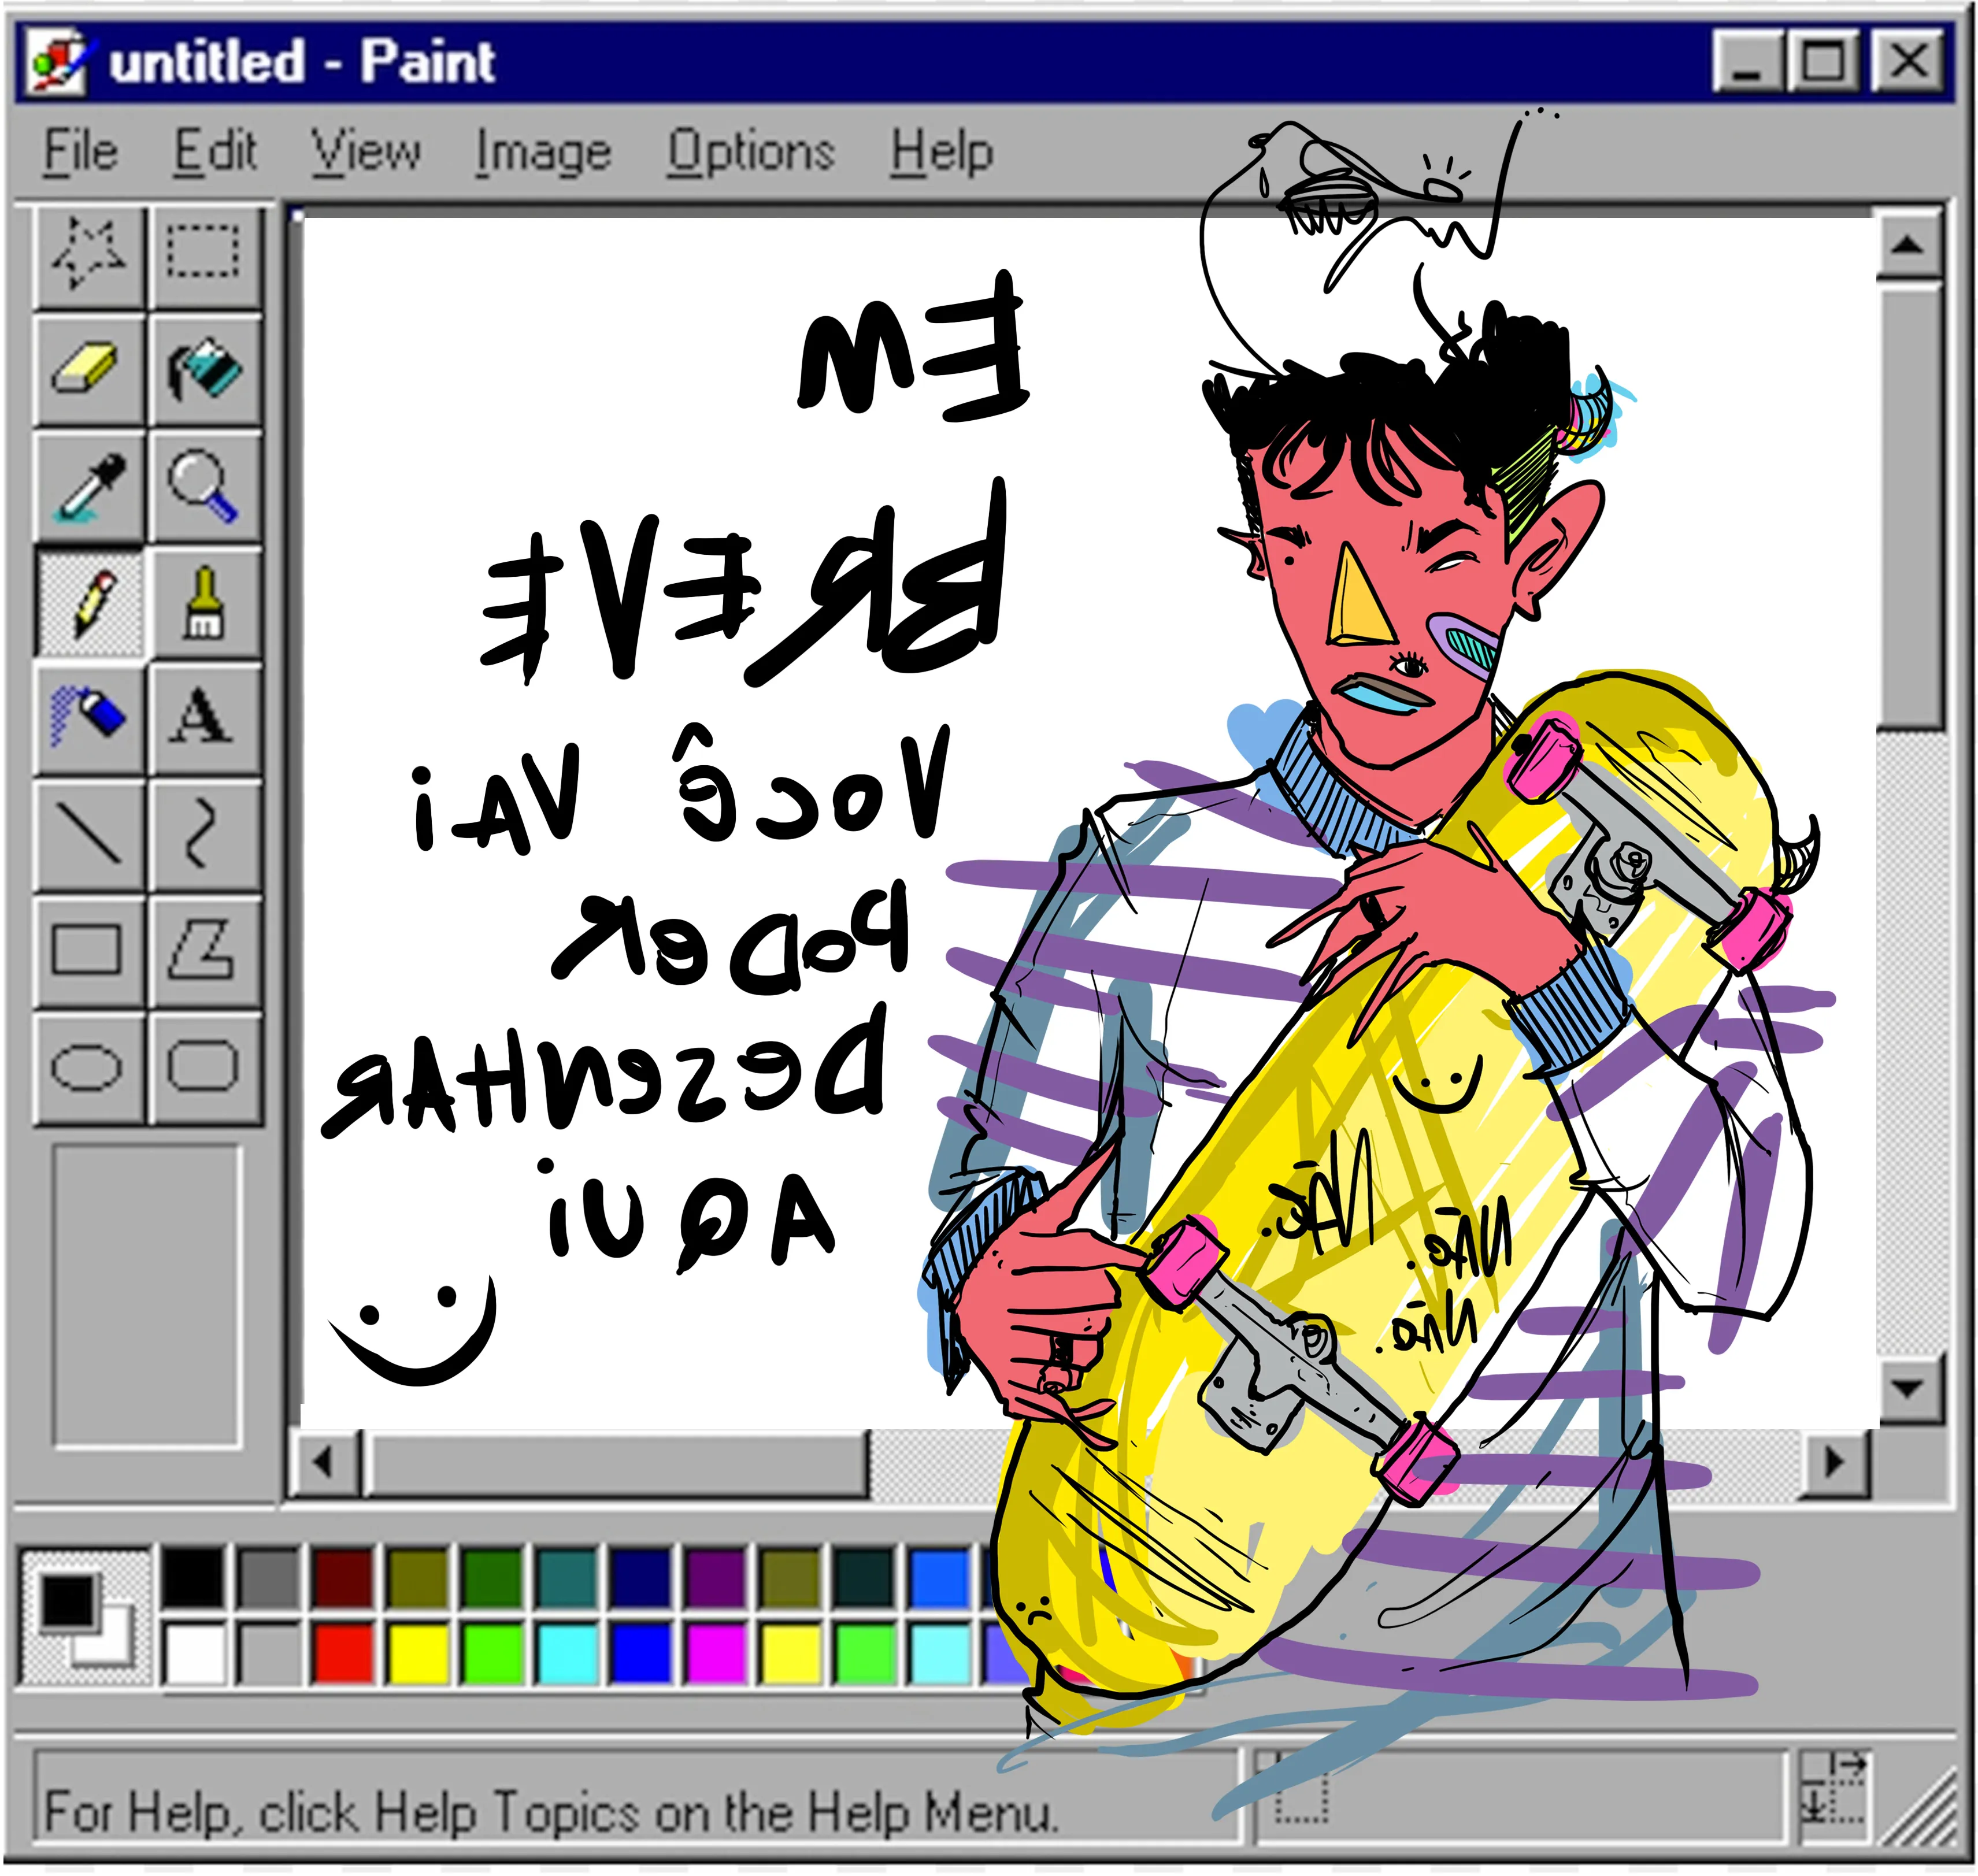 untitled - Paint
File Edit View Image Options Help
EM
BREVE
Você VAi
PoDeR
DeseNHAR
AQUi
Não.
Não.
Não.
A
For Help, click Help Topics on the Help Menu.